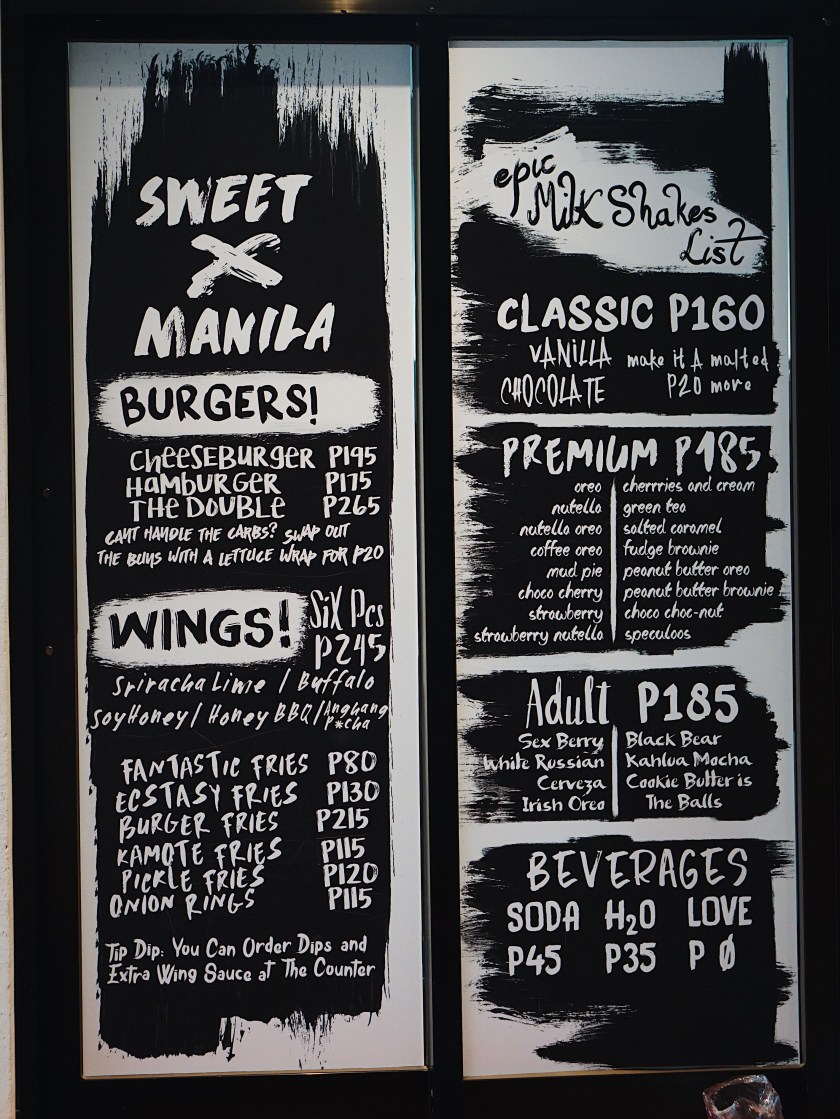 SWEET
X
MANILA
BURGERS!
CHEESEBURGER P195
HAMBURGER P175
THE DOUBLE P265
CANT HANDLE THE CARBS? SWAP OUT
THE BUNS WITH A LETTUCE WRAP FOR P20
WINGS! SiX Pcs
P245
Sriracha Lime / Buffalo
Soy Honey / Honey BBQ / Anghang
P*cha
FANTASTIC FRIES P80
ECSTASY FRIES P130
BURGER FRIES P215
KAMOTE FRIES P115
PICKLE FRIES P120
ONION RINGS P115
Tip Dip: You Can Order Dips and
Extra Wing Sauce at The Counter
epic
Milk Shakes
List
CLASSIC P160
VANILLA make it A malted
CHOCOLATE P20 more
PREMIUM P185
oreo cherrries and cream
nutella green tea
nutella oreo salted caramel
coffee oreo fudge brownie
mud pie peanut butter oreo
choco cherry peanut butter brownie
strawberry choco choc-nut
strawberry nutella speculoos
Adult P185
Sex Berry Black Bear
White Russian Kahlua Mocha
Cerveza Cookie Butter is
Irish Oreo The Balls
BEVERAGES
SODA H₂O LOVE
P45 P35 P Ø